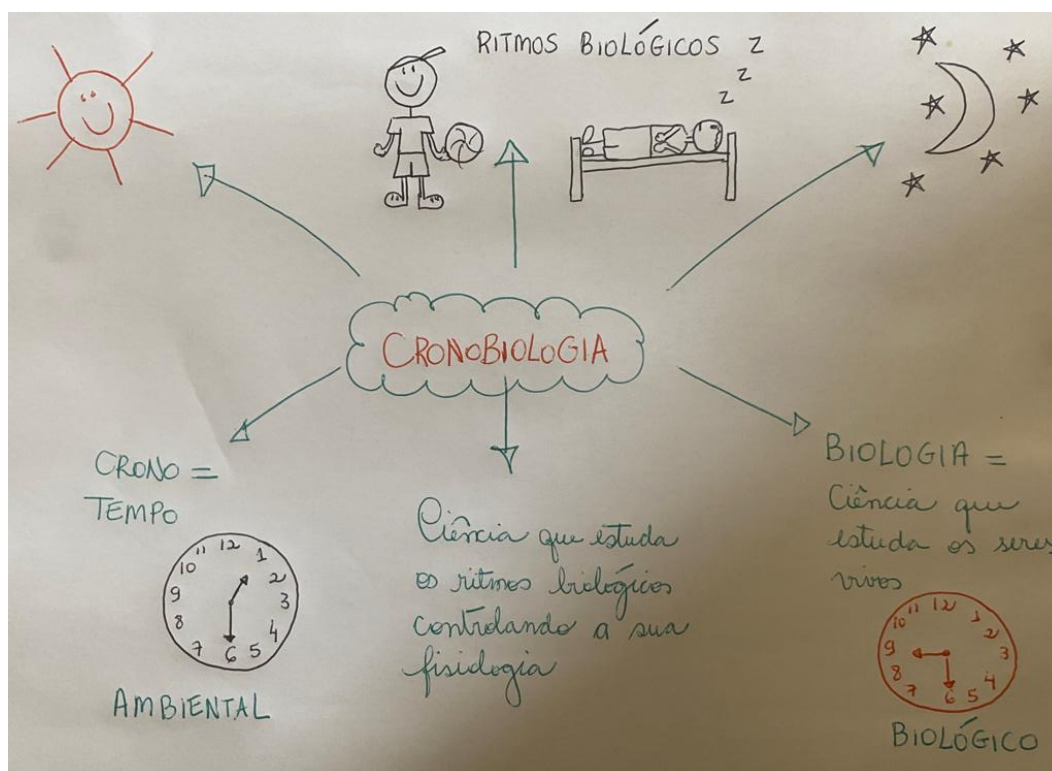 RITMOS BIOLÓGICOS Z
Z
Z
CRONOBIOLOGIA
CRONO =
TEMPO
11 12 1
10 2
9 3
8 4
7 6 5
AMBIENTAL
Ciência que estuda
os ritmos biológicos
controlando a sua
fisiologia
BIOLOGIA =
Ciência que
estuda os seres
vivos
11 12 1
10 2
9 3
8 4
7 6 5
BIOLÓGICO